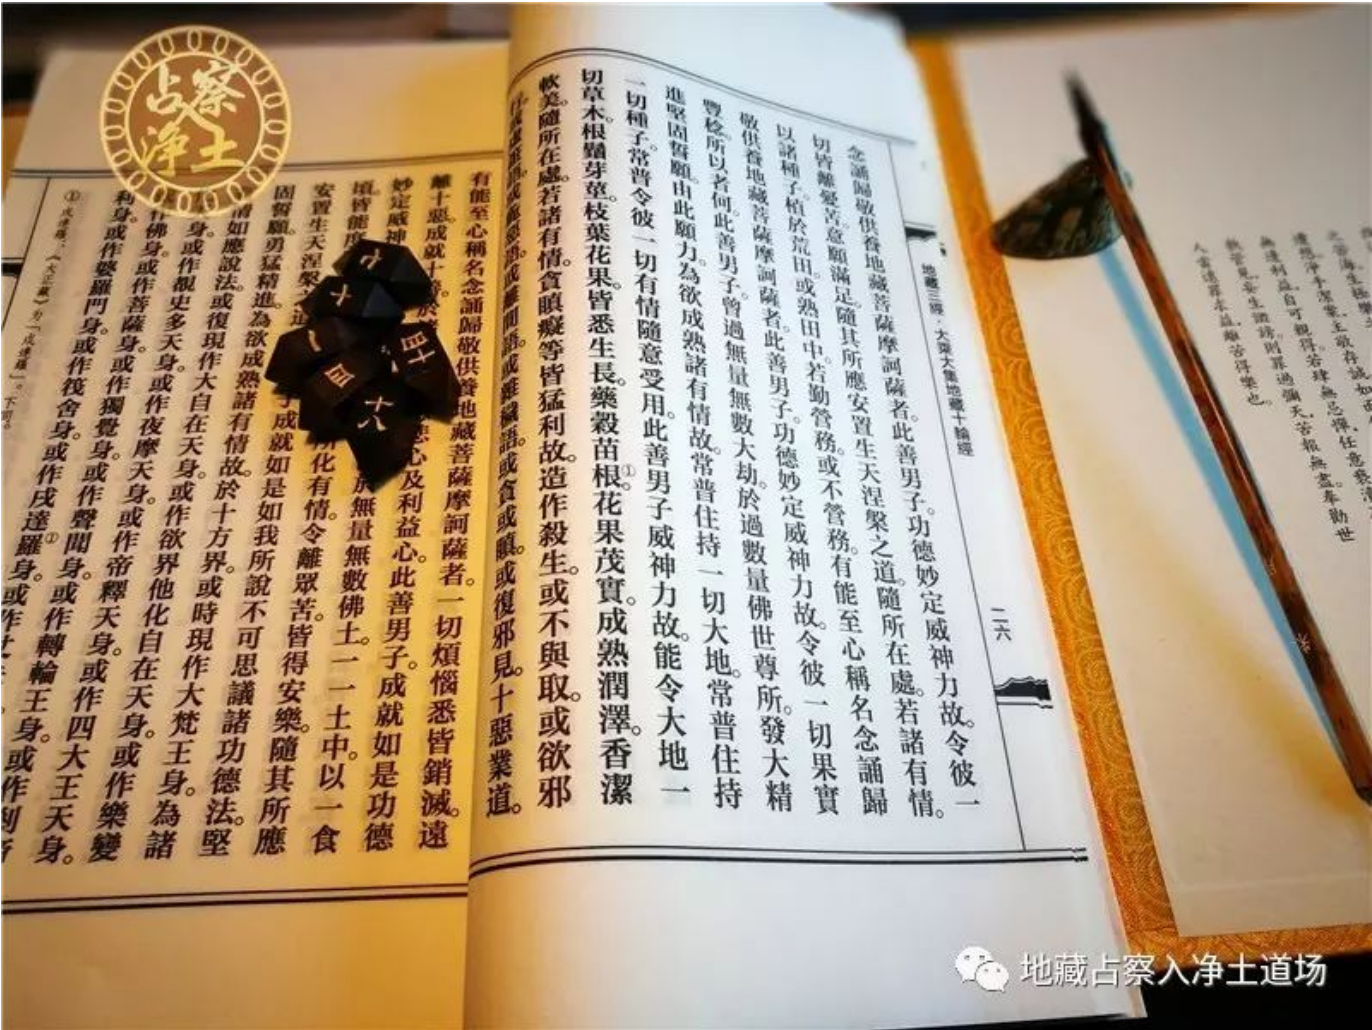 占察
净土
之苦海生極
遺想。淨手潔案，主敬存誠，如
無邊利益，自可親得。若肆無忌憚，任意
執管見，妄生譭謗，則罪過彌天，苦報無盡。奉勸世
人當遠罪求益，離苦得樂也。
地藏三經·大乘大集地藏十輪經
二六
念誦歸敬供養地藏菩薩摩訶薩者。此善男子。功德妙定威神力故。令彼一
切皆離憂苦。意願滿足。隨其所應安置生天涅槃之道。隨所在處。若諸有情。
以諸種子。植於荒田。或熟田中。若勤營務。或不營務。有能至心稱名念誦歸
敬供養地藏菩薩摩訶薩者。此善男子。功德妙定威神力故。令彼一切果實
豐稔。所以者何。此善男子。曾過無量無數大劫。於過數量佛世尊所。發大精
進堅固誓願。由此願力。為欲成熟諸有情故。常普住持一切大地。常普住持
一切種子。常普令彼一切有情隨意受用。此善男子威神力故。能令大地一
切草木根鬚芽莖枝葉花果皆悉生長。藥穀苗根①花果茂實。成熟潤澤。香潔
軟美。隨所在處。若諸有情。貪瞋癡等皆猛利故。造作殺生。或不與取。或欲邪
行。或虛誑語。或麁惡語。或離間語。或雜穢語。或貪或瞋。或復邪見。十惡業道。
有能至心稱名念誦歸敬供養地藏菩薩摩訶薩者。一切煩惱悉皆銷滅。遠
離十惡。成就十善。於 悲心及利益心。此善男子。成就如是功德
妙定威神 於無量無數佛土。一一土中。以一食
頃。皆能度 所化有情。令離眾苦。皆得安樂。隨其所應
安置生天涅槃之道 子成就如是如我所說不可思議諸功德法。堅
固誓願勇猛精進。為欲成熟諸有情故。於十方界。或時現作大梵王身。為諸
情如應說法。或復現作大自在天身。或作欲界他化自在天身。或作樂變
身。或作覩史多天身。或作夜摩天身。或作帝釋天身。或作四大王天身。
作佛身。或作菩薩身。或作獨覺身。或作聲聞身。或作轉輪王身。或作剎帝
利身。或作婆羅門身。或作筏舍身。或作戍達羅身①。或作
①戍達羅：《大正藏》为「戍達羅」。下同。
七
十
一
四
十四
十八
地藏占察入净土道场